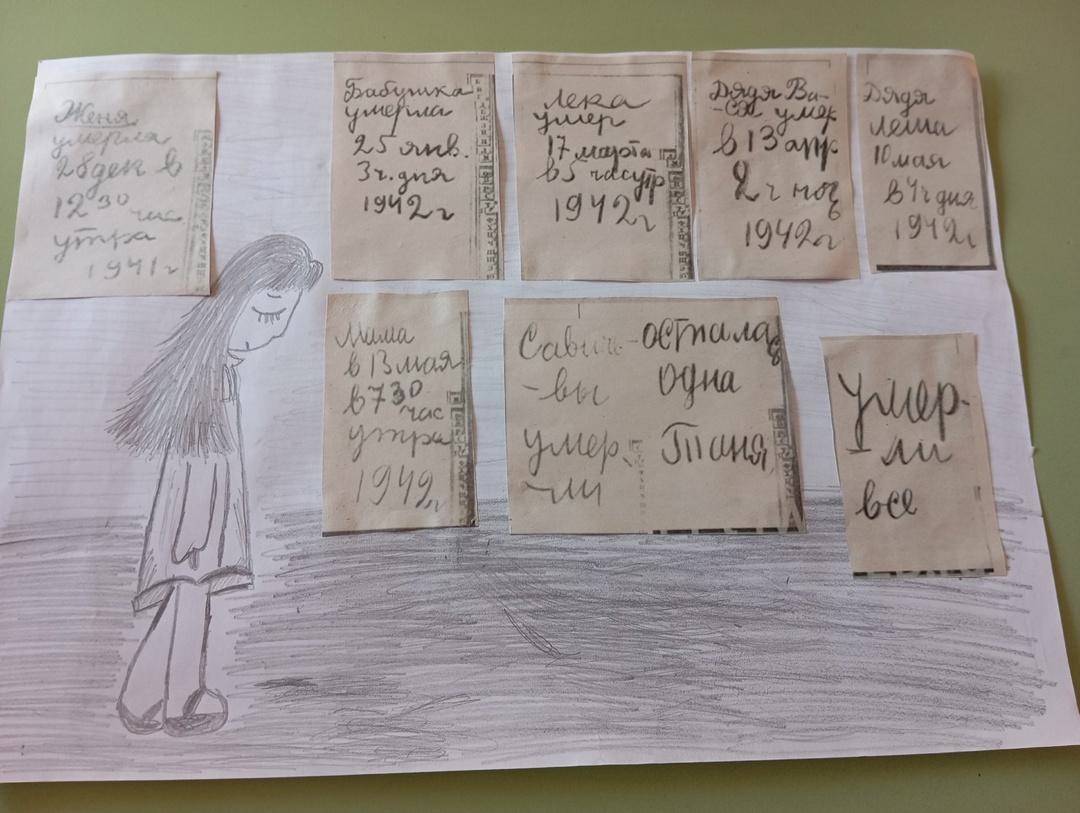 Женя
умерла
28 дек в
12 30 час
утра
1941 г
Бабушка
умерла
25 янв.
3 ч. дня
1942 г
Лека
умер
17 марта
в 5 час утр
1942 г
Дядя Ва-
-ся умер
в 13 апр
2 ч ноч
1942 г
Дядя
Леша
10 мая
в 4 ч дня
1942 г
Мама
в 13 мая
в 7 30
час
утра
1942 г
Савиче-
-вы
умер
-ли
осталась
одна
Таня
умер-
-ли
все